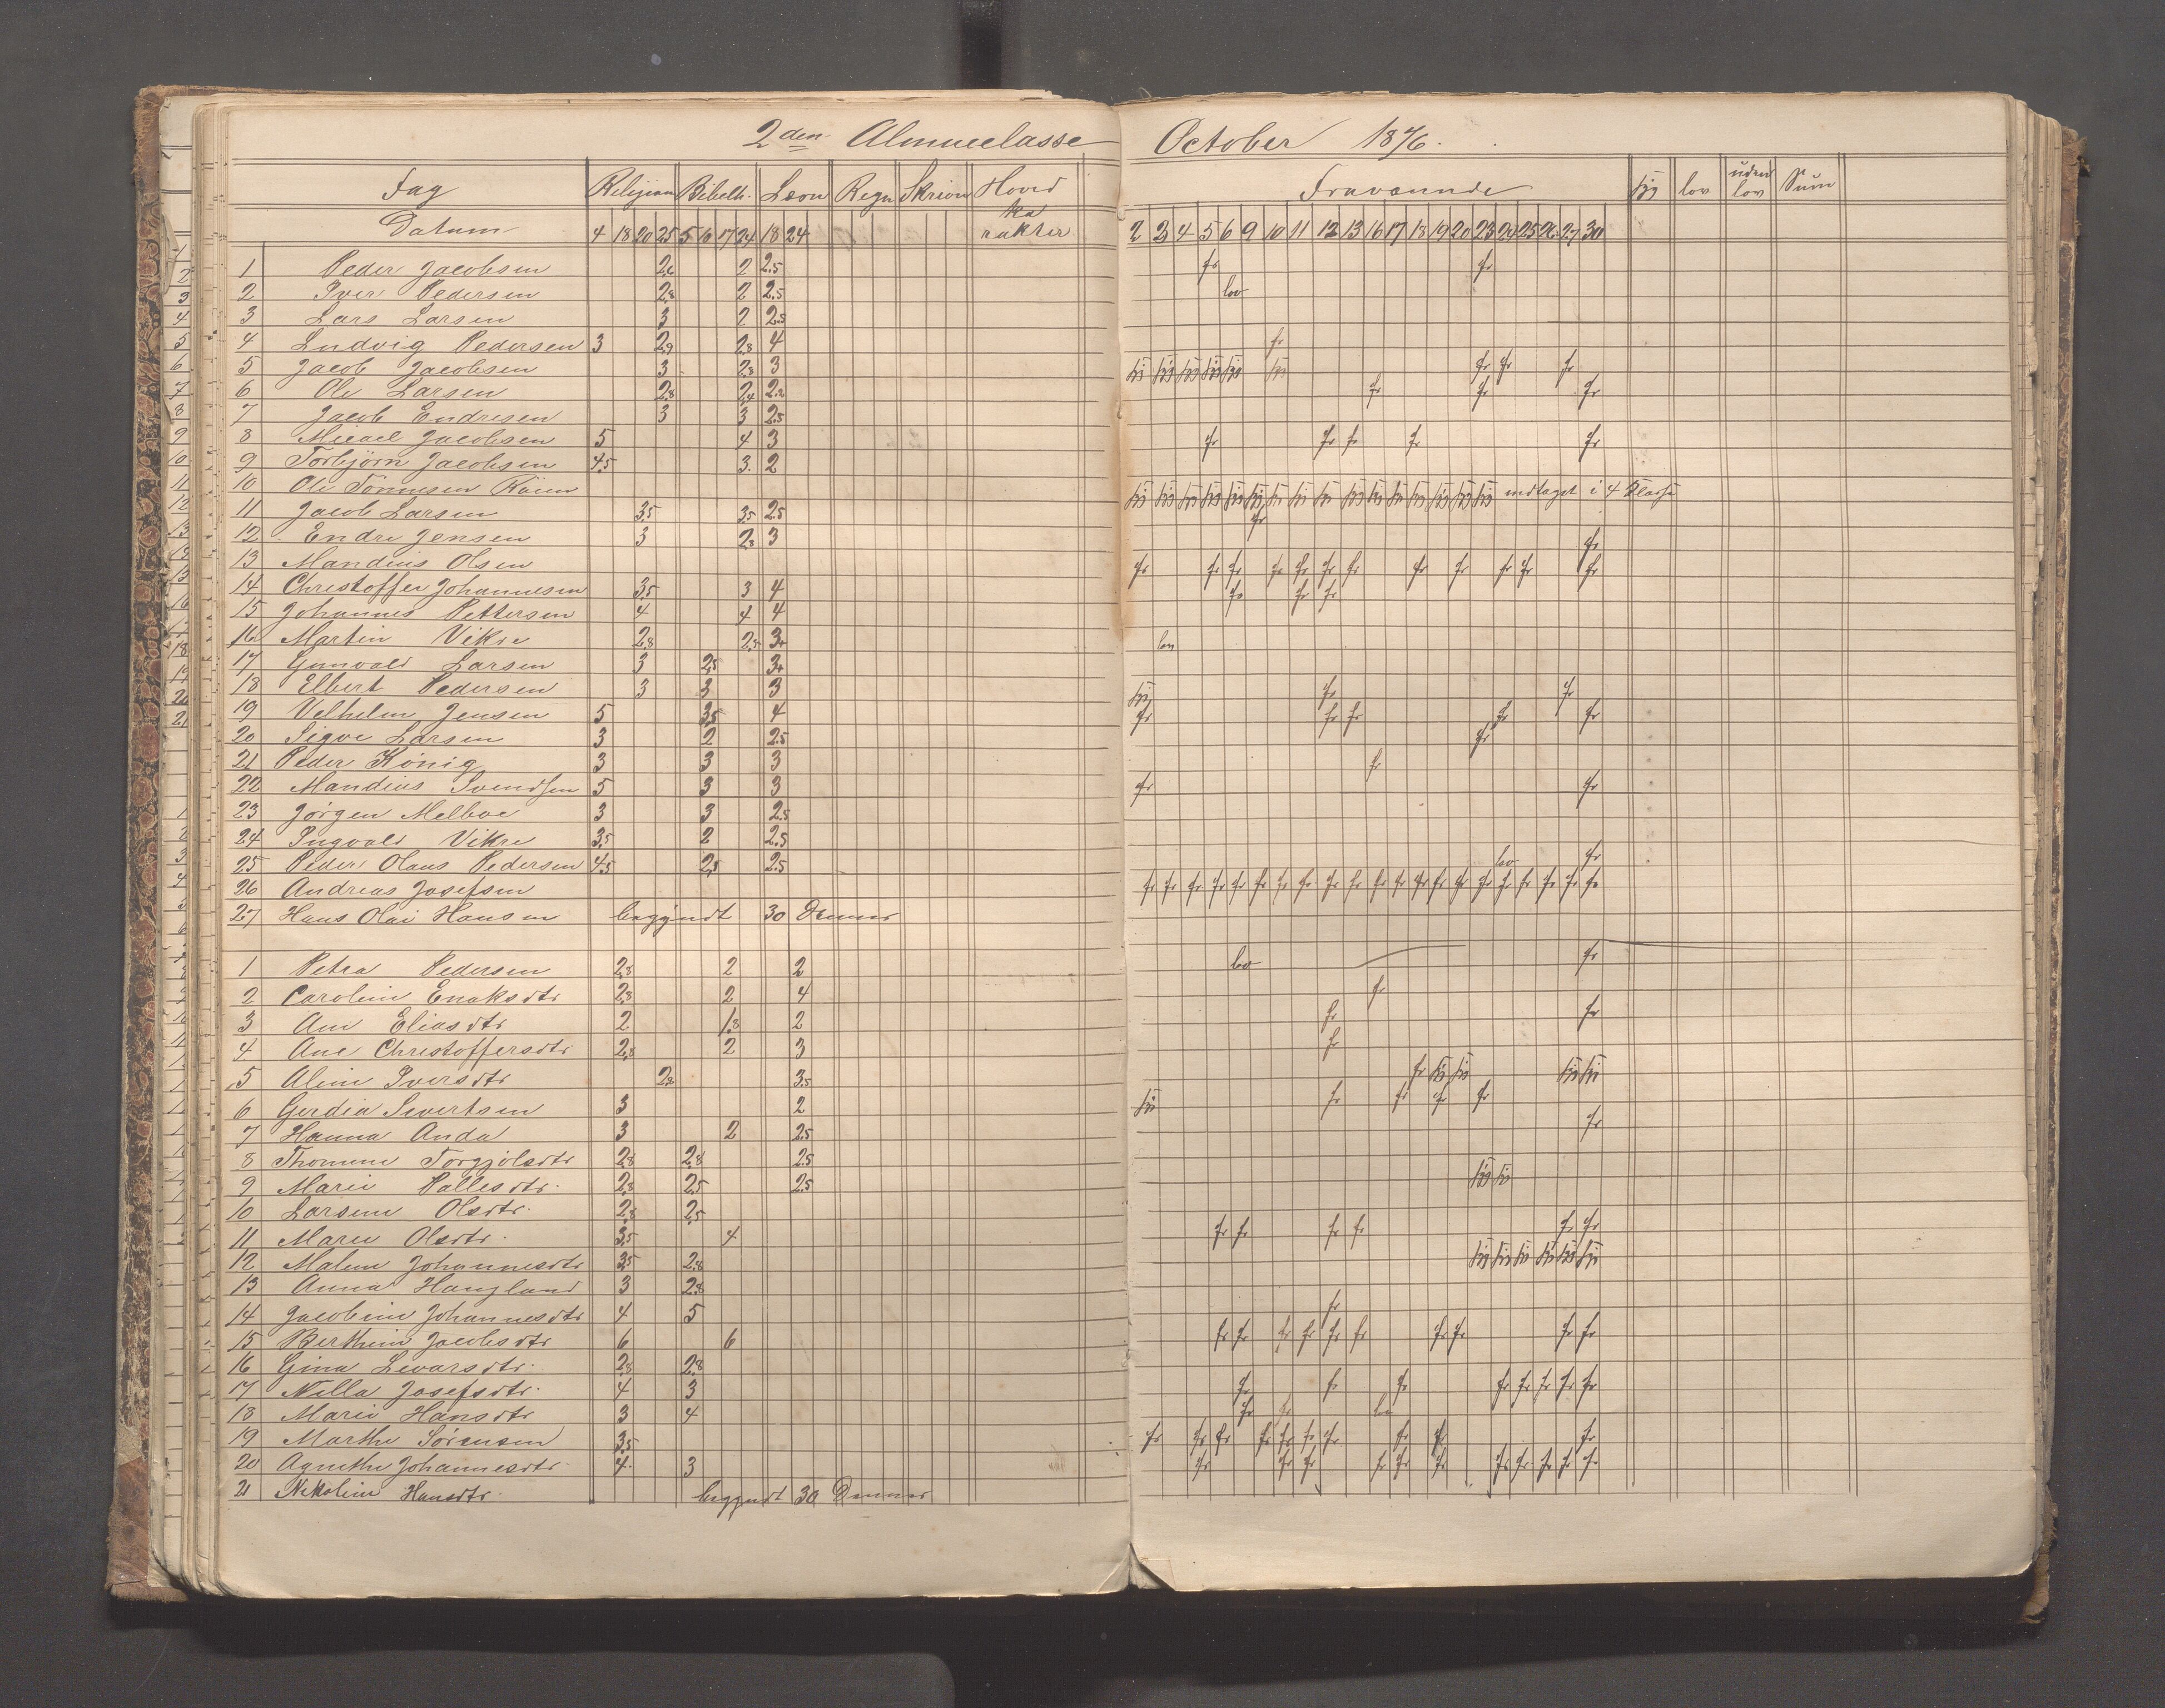 2den Almueclasse October 1876.
Fag Religion Bibelh. Læsn Regn Skrivn Hoved ka rakter Fraværende syg lov uden lov Sum
Datum 4 18 20 25 5 16 17 24 18 24 2 3 4 5 6 9 10 11 12 13 16 17 18 19 20 23 24 25 26 27 30
1 Peder Jacobsen 2.6 2 2.5 fr fr
2 Iver Pedersen 2.8 2 2.5 lov
3 Lars Larsen 3 2 2.5
4 Ludvig Pedersen 3 2.9 2.8 4 fr
5 Jacob Jacobsen 3 2.8 3 syg syg syg syg syg syg fr fr fr
6 Ole Larsen 2.8 2.4 2.2 fr fr fr
7 Jacob Endresen 3 3 2.5
8 Micael Jacobsen 5 4 3 fr fr fr fr fr
9 Torbjørn Jacobsen 4.5 3. 2
10 Ole Tönnesen syg syg syg syg syg syg syg syg syg syg syg syg syg syg syg syg indtaget i 4 Klasse
11 Jacob Larsen 3.5 3.5 2.5 fr
12 Endre Jensen 3 2.8 3 fr
13 Mandius Olsen fr fr fr fr fr fr fr fr fr fr fr fr
14 Christoffer Johannesen 3.5 3 4 fr fr fr
15 Johannes Pettersen 4 4 4
16 Martin Vikre 2.8 2.5 3+ lov
17 Gunvald Larsen 3 2.5 3+
18 Elbert Pedersen 3 3 3 syg fr fr
19 Velhelm Jensen 5 3.5 4 fr fr fr fr fr
20 Sigve Larsen 3 2 2.5 fr
21 Peder König 3 3 3 fr
22 Mandius Svendsen 5 3 3 fr fr
23 Jörgen Melboe 3 3 2.5
24 Ingvald Vikre 3.5 2 2.5
25 Peder Olaus Pedersen 4.5 2.5 2.5 lov fr
26 Andreas Josefsen fr fr fr fr fr fr fr fr fr fr fr fr fr fr fr fr fr fr fr fr
27 Hans Olai Hansen begyndt 30 Dennes
1 Petra Pedersen 2.8 2 2 lov fr
2 Carolein Enoksdtr 2.8 2 4 fr
3 Ane Eliasdtr 2 1.8 2 fr fr
4 Ane Christoffersdtr 2.8 2 3 fr
5 Aline Iversdtr 2.8 3.5 fr syg syg syg syg
6 Gerdia Sivertsen 3 2 syg fr fr fr fr
7 Hanna Anda 3 2 2.5 fr
8 Thomine Torgjölsdtr 2.8 2.8 2.5
9 Marie Pallesdtr. 2.8 2.5 2.5 syg syg
10 Larsine Olsdtr. 2.8 2.5
11 Marie Olsdtr. 3.5 4 fr fr fr fr fr fr
12 Malene Johannesdtr 3.5 2.8 syg syg syg syg syg syg
13 Anna Haugland 3 2.8
14 Jacobine Johannesdtr 4 5 fr
15 Berthine Jacobsdtr 6 6 fr fr fr fr fr fr fr fr fr fr
16 Gina Levarsdtr. 2.8 2.8
17 Nilla Josefsdtr. 4 3 fr fr fr fr fr fr fr fr
18 Marie Hansdtr 3 4 fr fr lov
19 Marthe Sörensen 3.5 fr fr fr fr fr fr fr fr fr fr
20 Agnethe Johannesdtr. 4. 3 fr fr fr fr fr fr fr fr fr fr fr
21 Nikoline Hansdtr. begyndt 30 Dennes